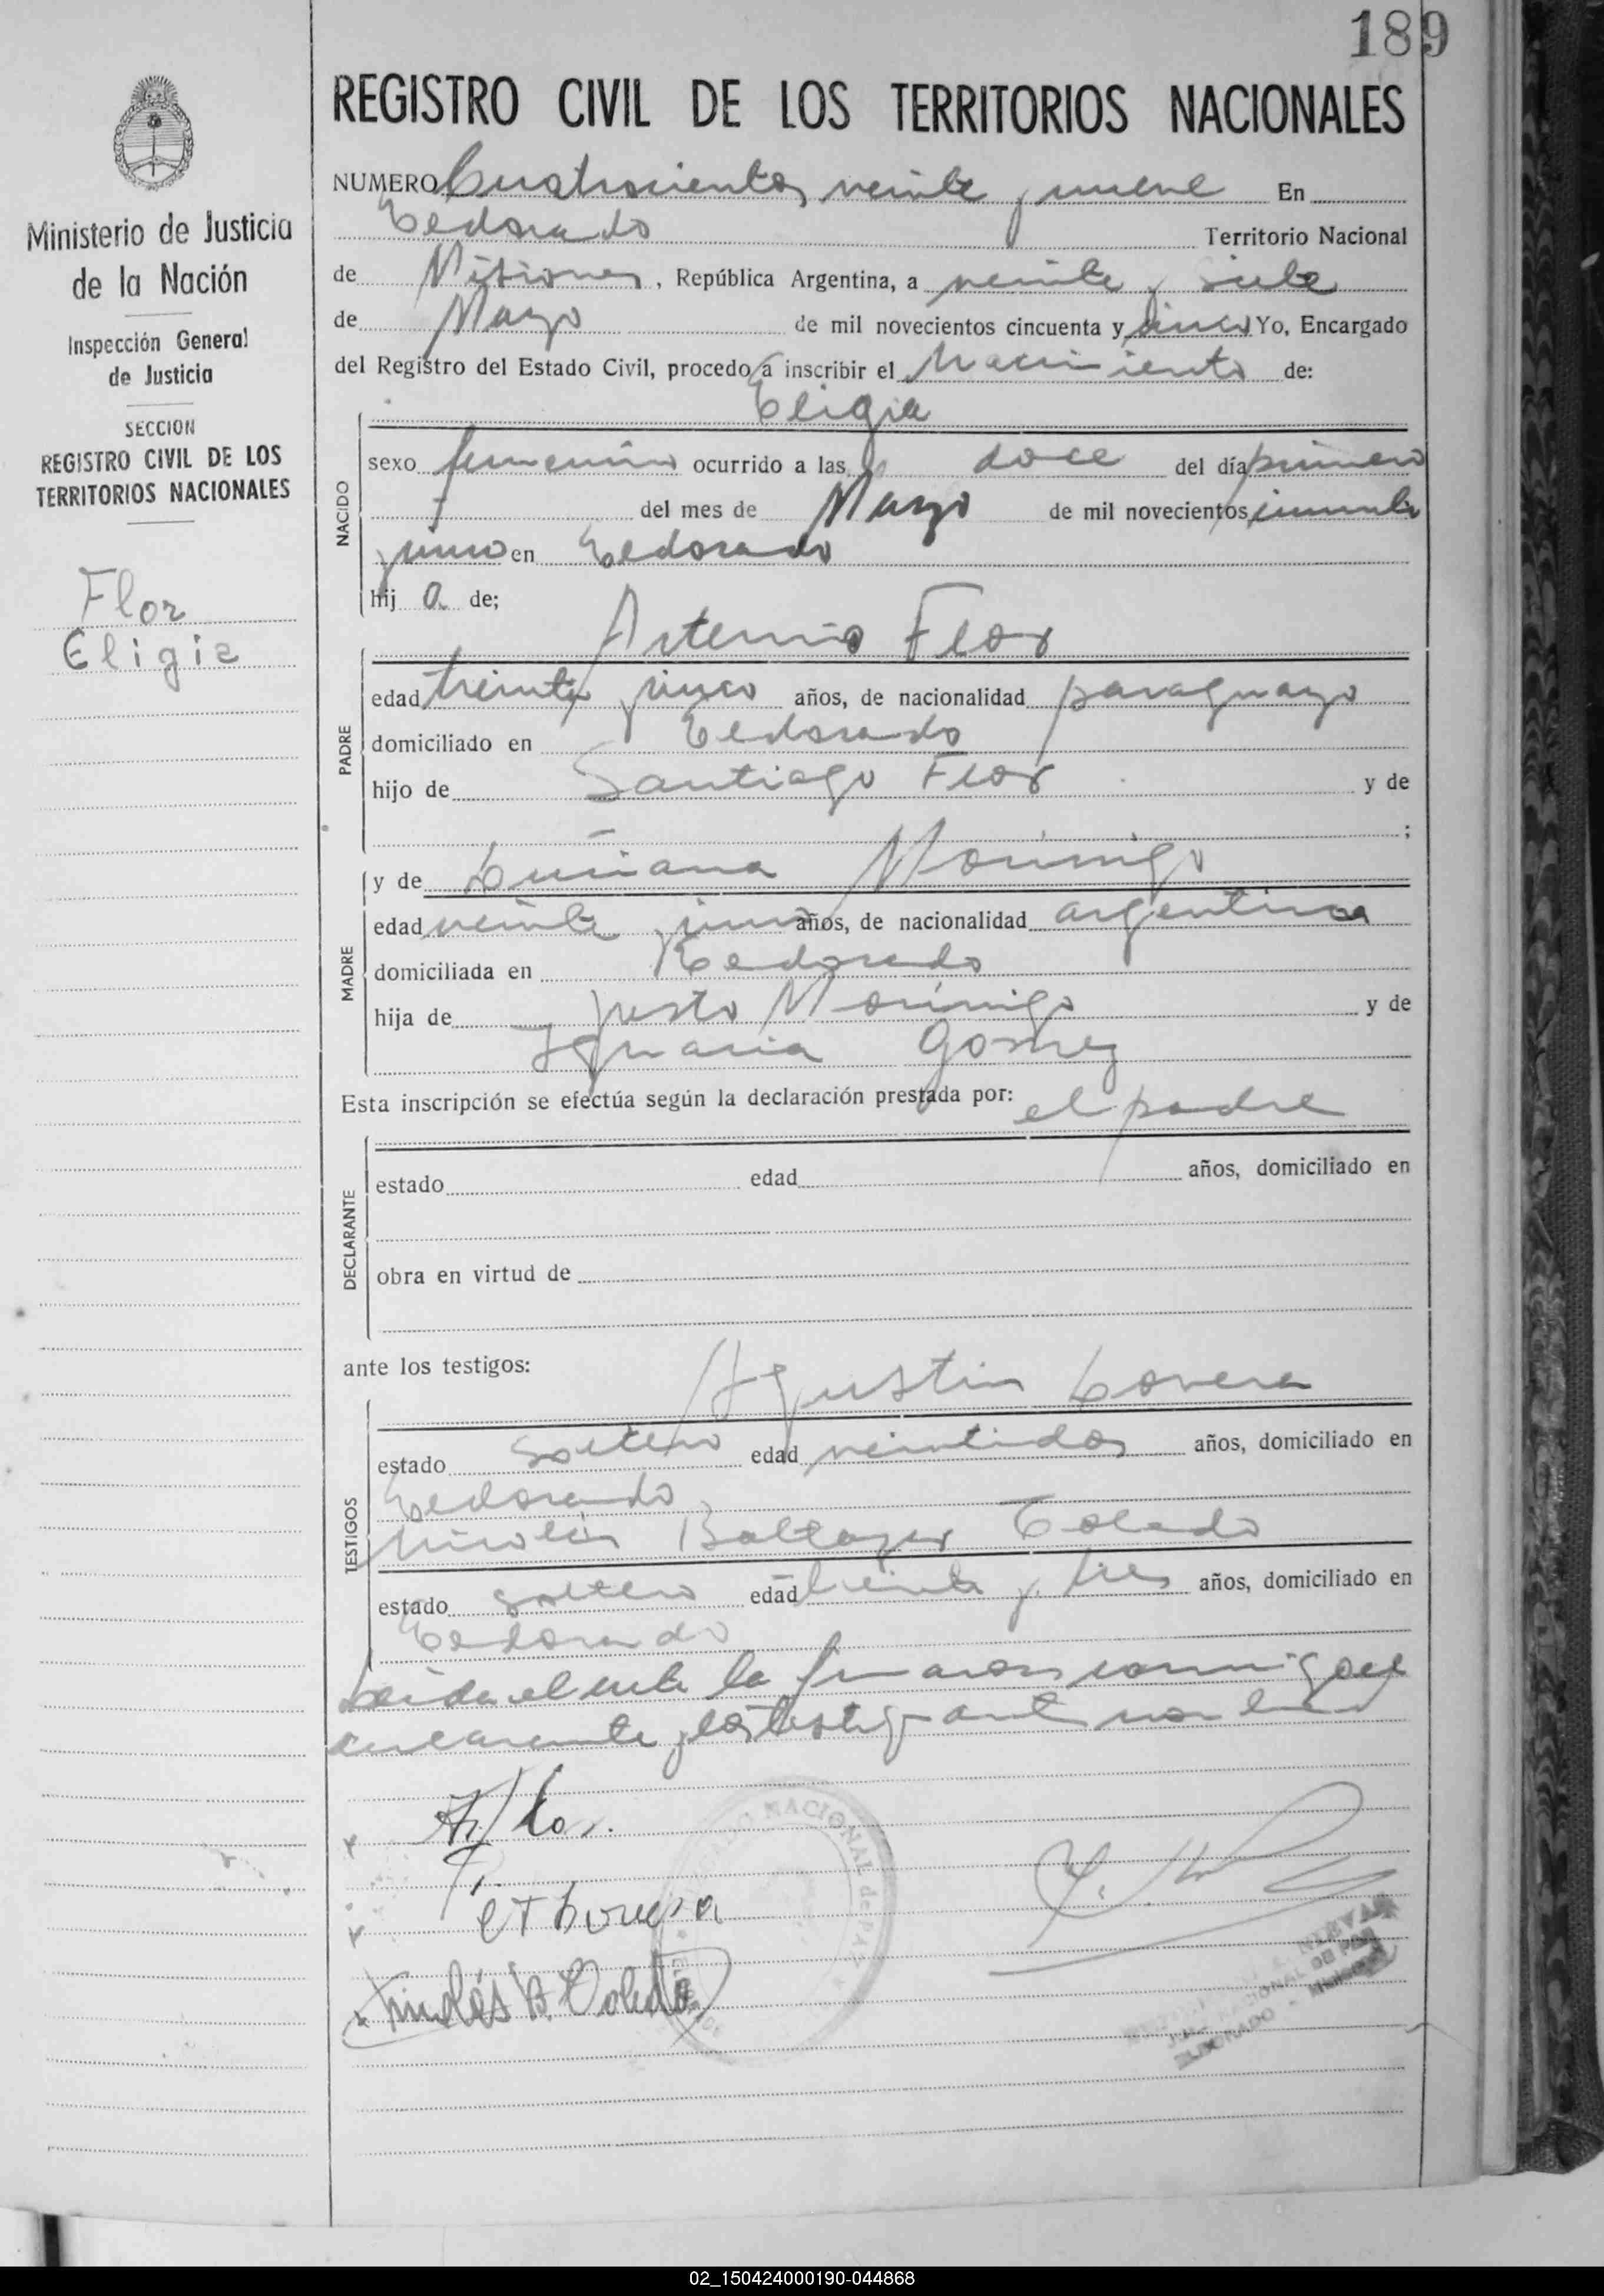 189
REGISTRO CIVIL DE LOS TERRITORIOS NACIONALES
Ministerio de Justicia
de la Nación
Inspección General
de Justicia
SECCION
REGISTRO CIVIL DE LOS
TERRITORIOS NACIONALES
Flor
Eligia
NUMERO Cuatrocientos veinte y nueve En
Eldorado Territorio Nacional
de Misiones, República Argentina, a veinte y siete
de Marzo de mil novecientos cincuenta y cinco Yo, Encargado
del Registro del Estado Civil, procedo a inscribir el Nacimiento de:
Eligia
NACIDO
sexo femenino ocurrido a las doce del día primero
del mes de Marzo de mil novecientos cincuenta
y cinco en Eldorado
hij a de;
Artemio Flor
PADRE
edad treinta y cinco años, de nacionalidad paraguayo
domiciliado en Eldorado
hijo de Santiago Flor y de
;
y de Luciana Morinigo
MADRE
edad veinte y cinco años, de nacionalidad argentina
domiciliada en Eldorado
hija de Justo Morinigo y de
Ignacia Gomez
Esta inscripción se efectúa según la declaración prestada por: el padre
DECLARANTE
estado edad años, domiciliado en
obra en virtud de
ante los testigos:
Agustin Lovera
TESTIGOS
estado soltero edad veintidos años, domiciliado en
Eldorado
Nicolás Baltazar Toledo
estado soltero edad treinta y tres años, domiciliado en
Eldorado
Leida el acta la firmaron conmigo el
declarante y los testigos
A. Flor.
Nicolés B. Toledo
NACIONAL de PAZ
NACIONAL DE PAZ
ELDORADO - Misiones
02_150424000190-044868